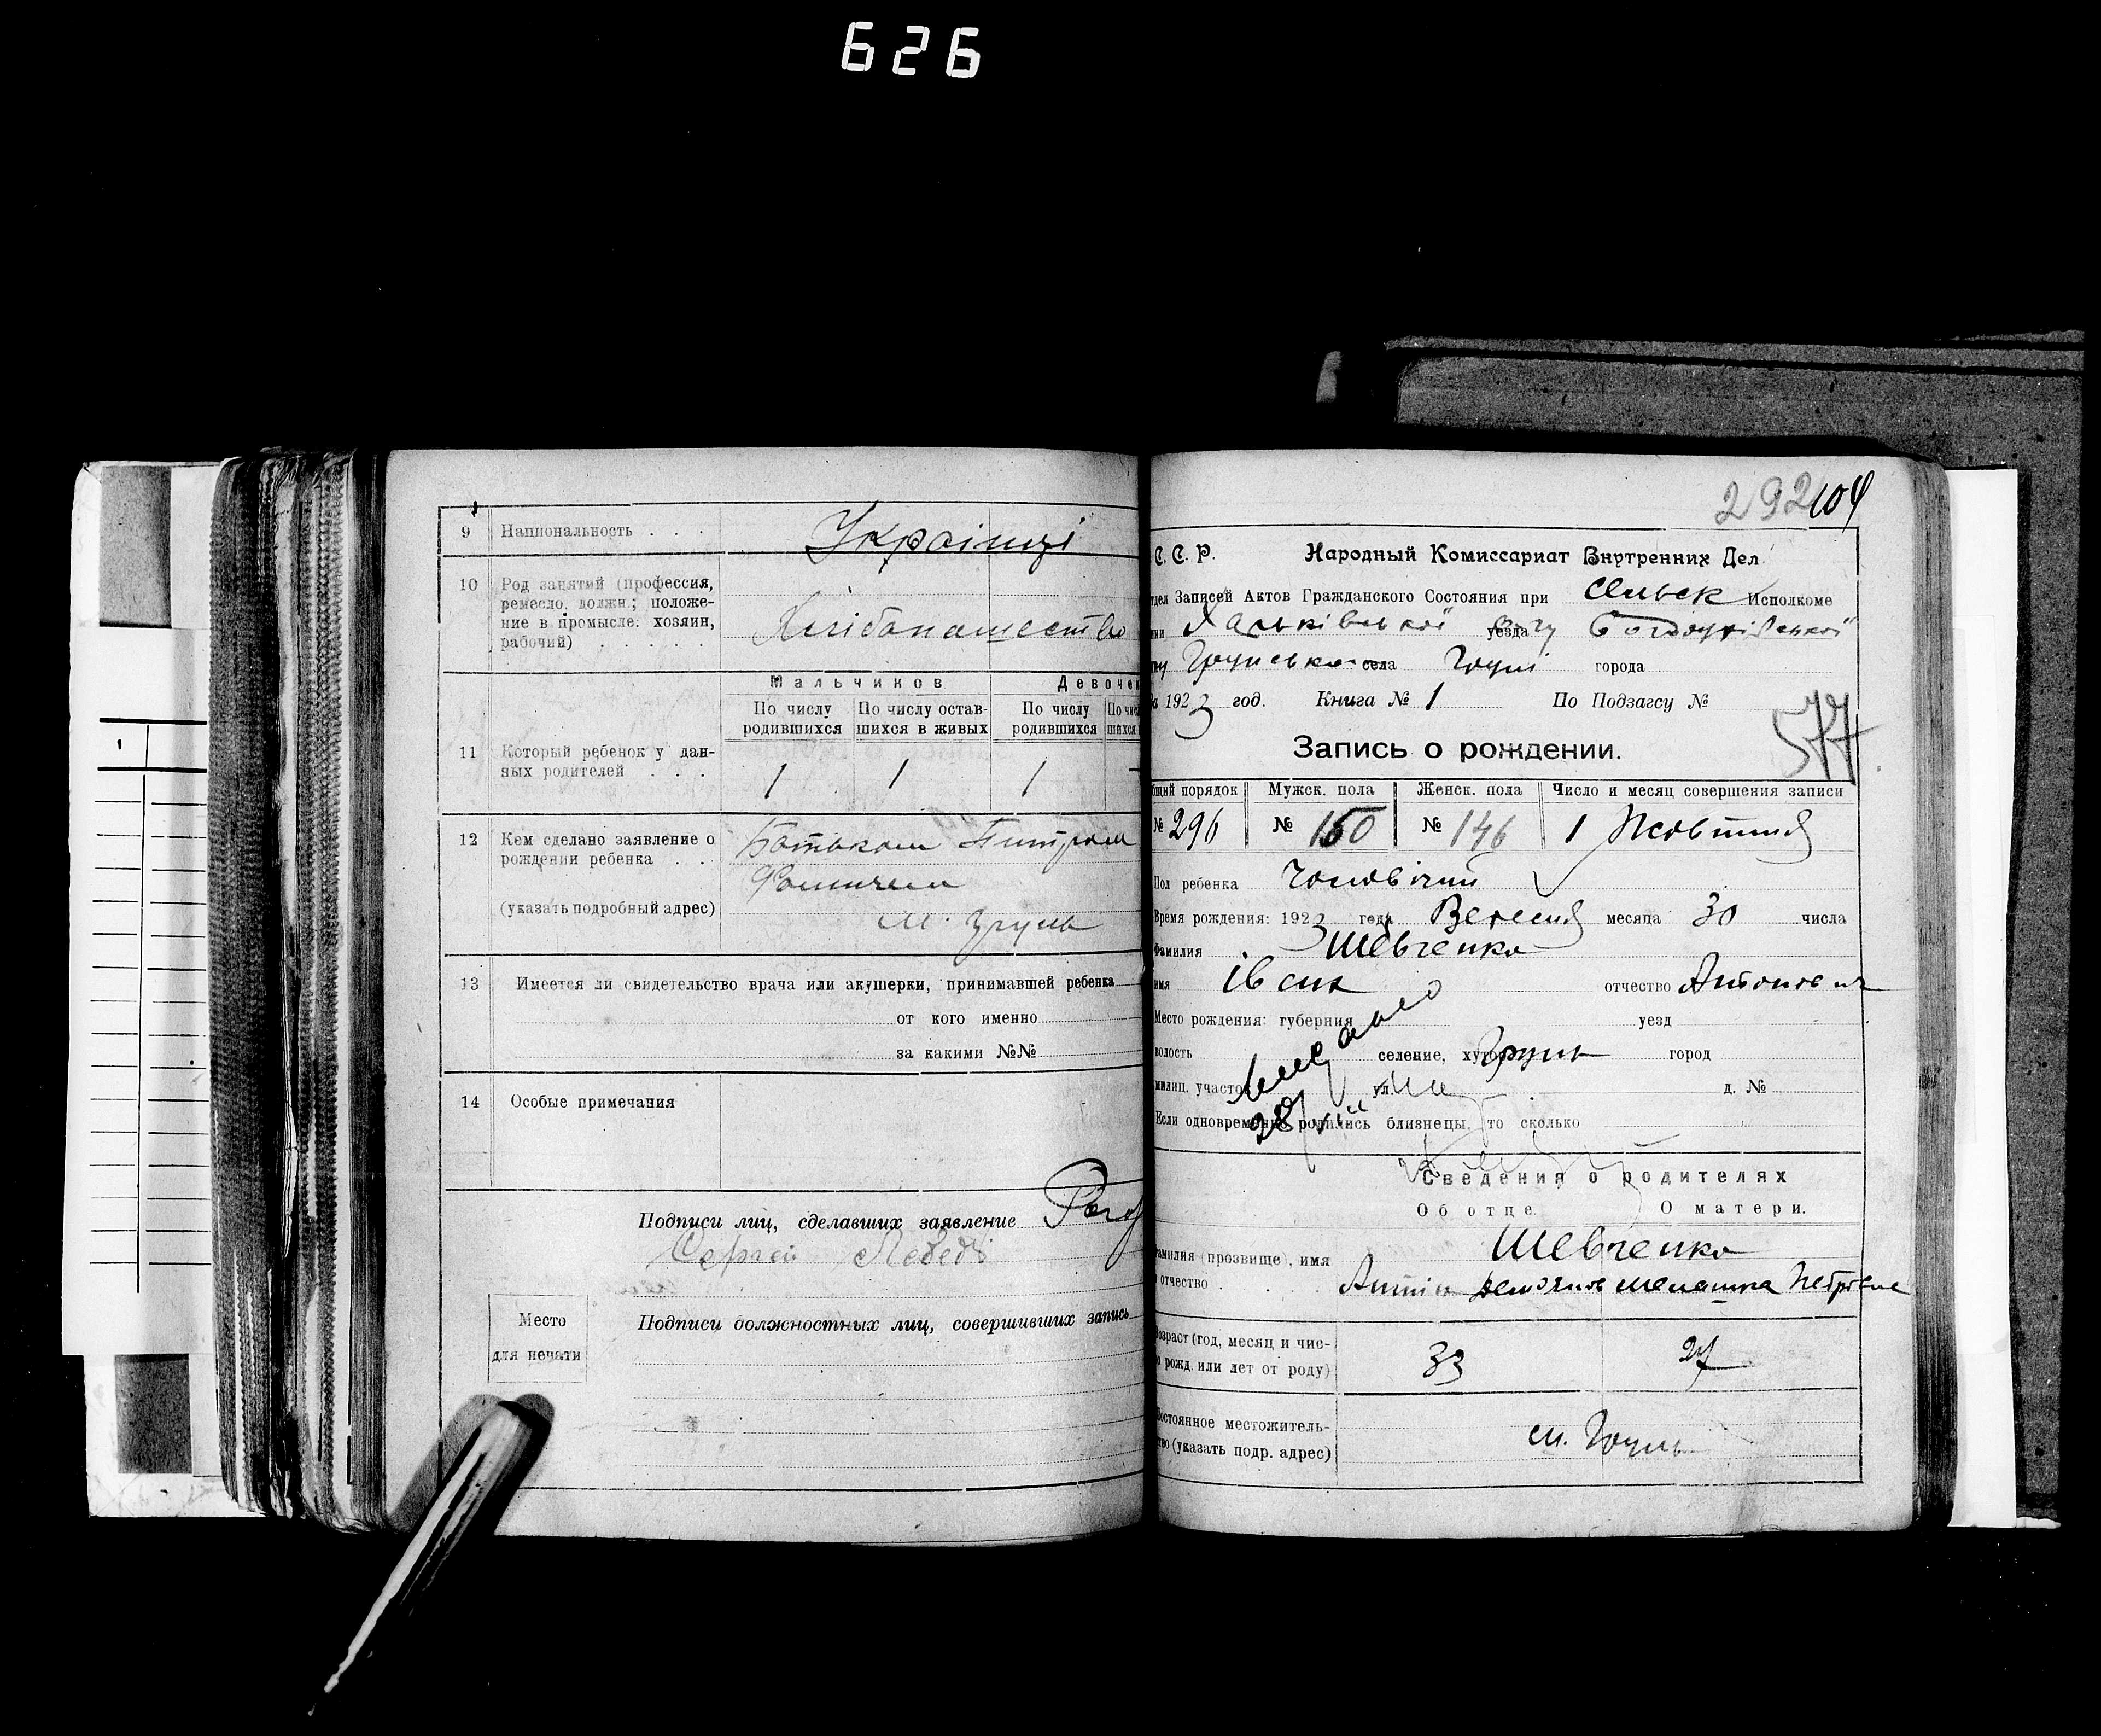 626
9 Национальность . . . Українці
10 Род занятий (профессия,
ремесло, должн.; положе-
ние в промысле: хозяин,
рабочий) . . . . .
Мальчиков Девочек
По числу родившихся По числу остав-шихся в живых По числу родившихся
11 Который ребенок у дан-
ных родителей . . . 1 1 1
12 Кем сделано заявление о
рождении ребенка . . Батьком
(указать подробный адрес)
м. Грунь
13 Имеется ли свидетельство врача или акушерки, принимавшей ребенка
от кого именно
за какими №№
14 Особые примечания
Подписи лиц, сделавших заявление
Сергей Лебедь
Место
для печати
Подписи должностных лиц, совершивших запись
292 104
С. С. Р. Народный Комиссариат Внутренних Дел
Записей Актов Гражданского Состояния при Сільськ Исполкоме
Харьківської уезда
села Груні города
192 3 год. Книга № 1 По Подзагсу №
577
Запись о рождении.
порядок Мужск. пола Женск. пола Число и месяц совершения записи
№ 296 № 150 № 146 1 Жовтня
Пол ребенка Чоловічий
Время рождения: 192 3 года Вересня месяца 30 числа
Фамилия Шевченко
имя Іван отчество Антонович
Место рождения: губерния уезд
волость селение, хутор Грунь город
милиц. участок ул. д. №
28/XII
Если одновременно родились близнецы, то сколько
Сведения о родителях
Об отце. О матери.
Фамилия (прозвище), имя Шевченко
отчество . . . Антін Мелашка Петрівна
Возраст (год, месяц и чис-
рожд. или лет от роду) 33 27
Постоянное местожитель-
ство (указать подр. адрес) м. Грунь